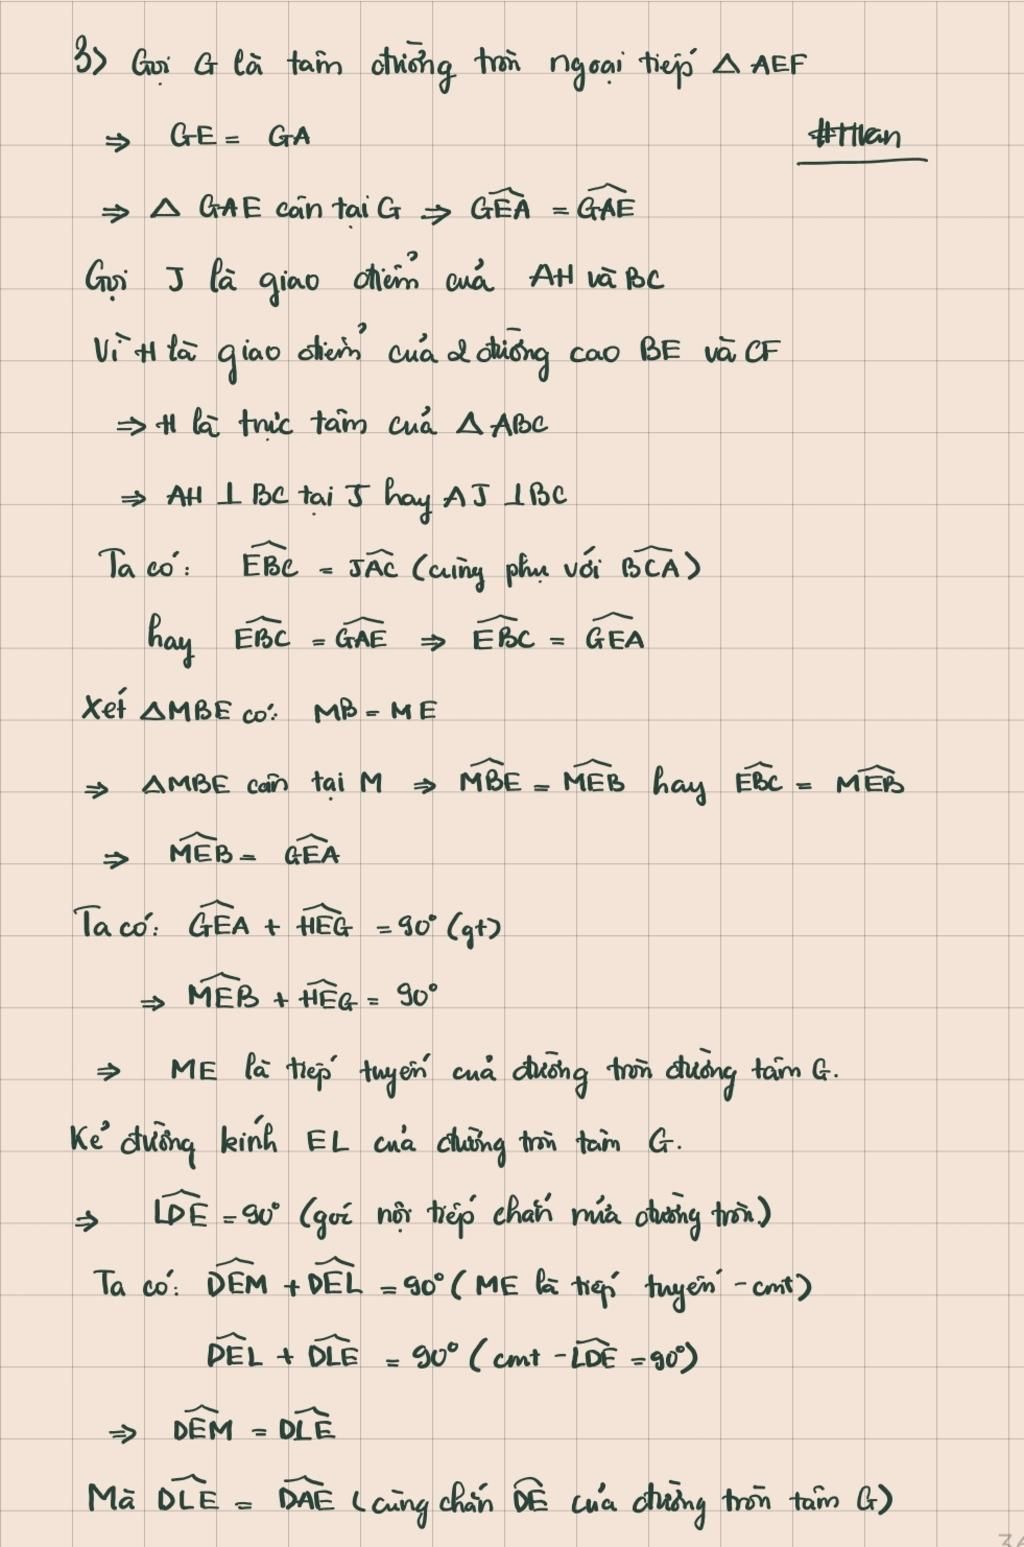 3) Gọi G là tâm đường tròn ngoại tiếp △ AEF
⇒ GE = GA
#Hvan
⇒ △ GAE cân tại G ⇒ \widehat{GEA} = \widehat{GAE}
Gọi J là giao điểm của AH và BC
Vì H là giao điểm của 2 đường cao BE và CF
⇒ H là trực tâm của △ ABC
⇒ AH ⊥ BC tại J hay AJ ⊥ BC
Ta có: \widehat{EBC} = \widehat{JAC} (cùng phụ với \widehat{BCA})
hay \widehat{EBC} = \widehat{GAE} ⇒ \widehat{EBC} = \widehat{GEA}
Xét △MBE có: MB = ME
⇒ △MBE cân tại M ⇒ \widehat{MBE} = \widehat{MEB} hay \widehat{EBC} = \widehat{MEB}
⇒ \widehat{MEB} = \widehat{GEA}
Ta có: \widehat{GEA} + \widehat{HEG} = 90° (gt)
⇒ \widehat{MEB} + \widehat{HEG} = 90°
⇒ ME là tiếp tuyến của đường tròn đường tâm G.
Kẻ đường kính EL của đường tròn tâm G.
⇒ \widehat{LDE} = 90° (góc nội tiếp chắn nửa đường tròn)
Ta có: \widehat{DEM} + \widehat{DEL} = 90° (ME là tiếp tuyến - cmt)
\widehat{DEL} + \widehat{DLE} = 90° (cmt - \widehat{LDE} = 90°)
⇒ \widehat{DEM} = \widehat{DLE}
Mà \widehat{DLE} = \widehat{DAE} (cùng chắn \widehat{DE} của đường tròn tâm G)